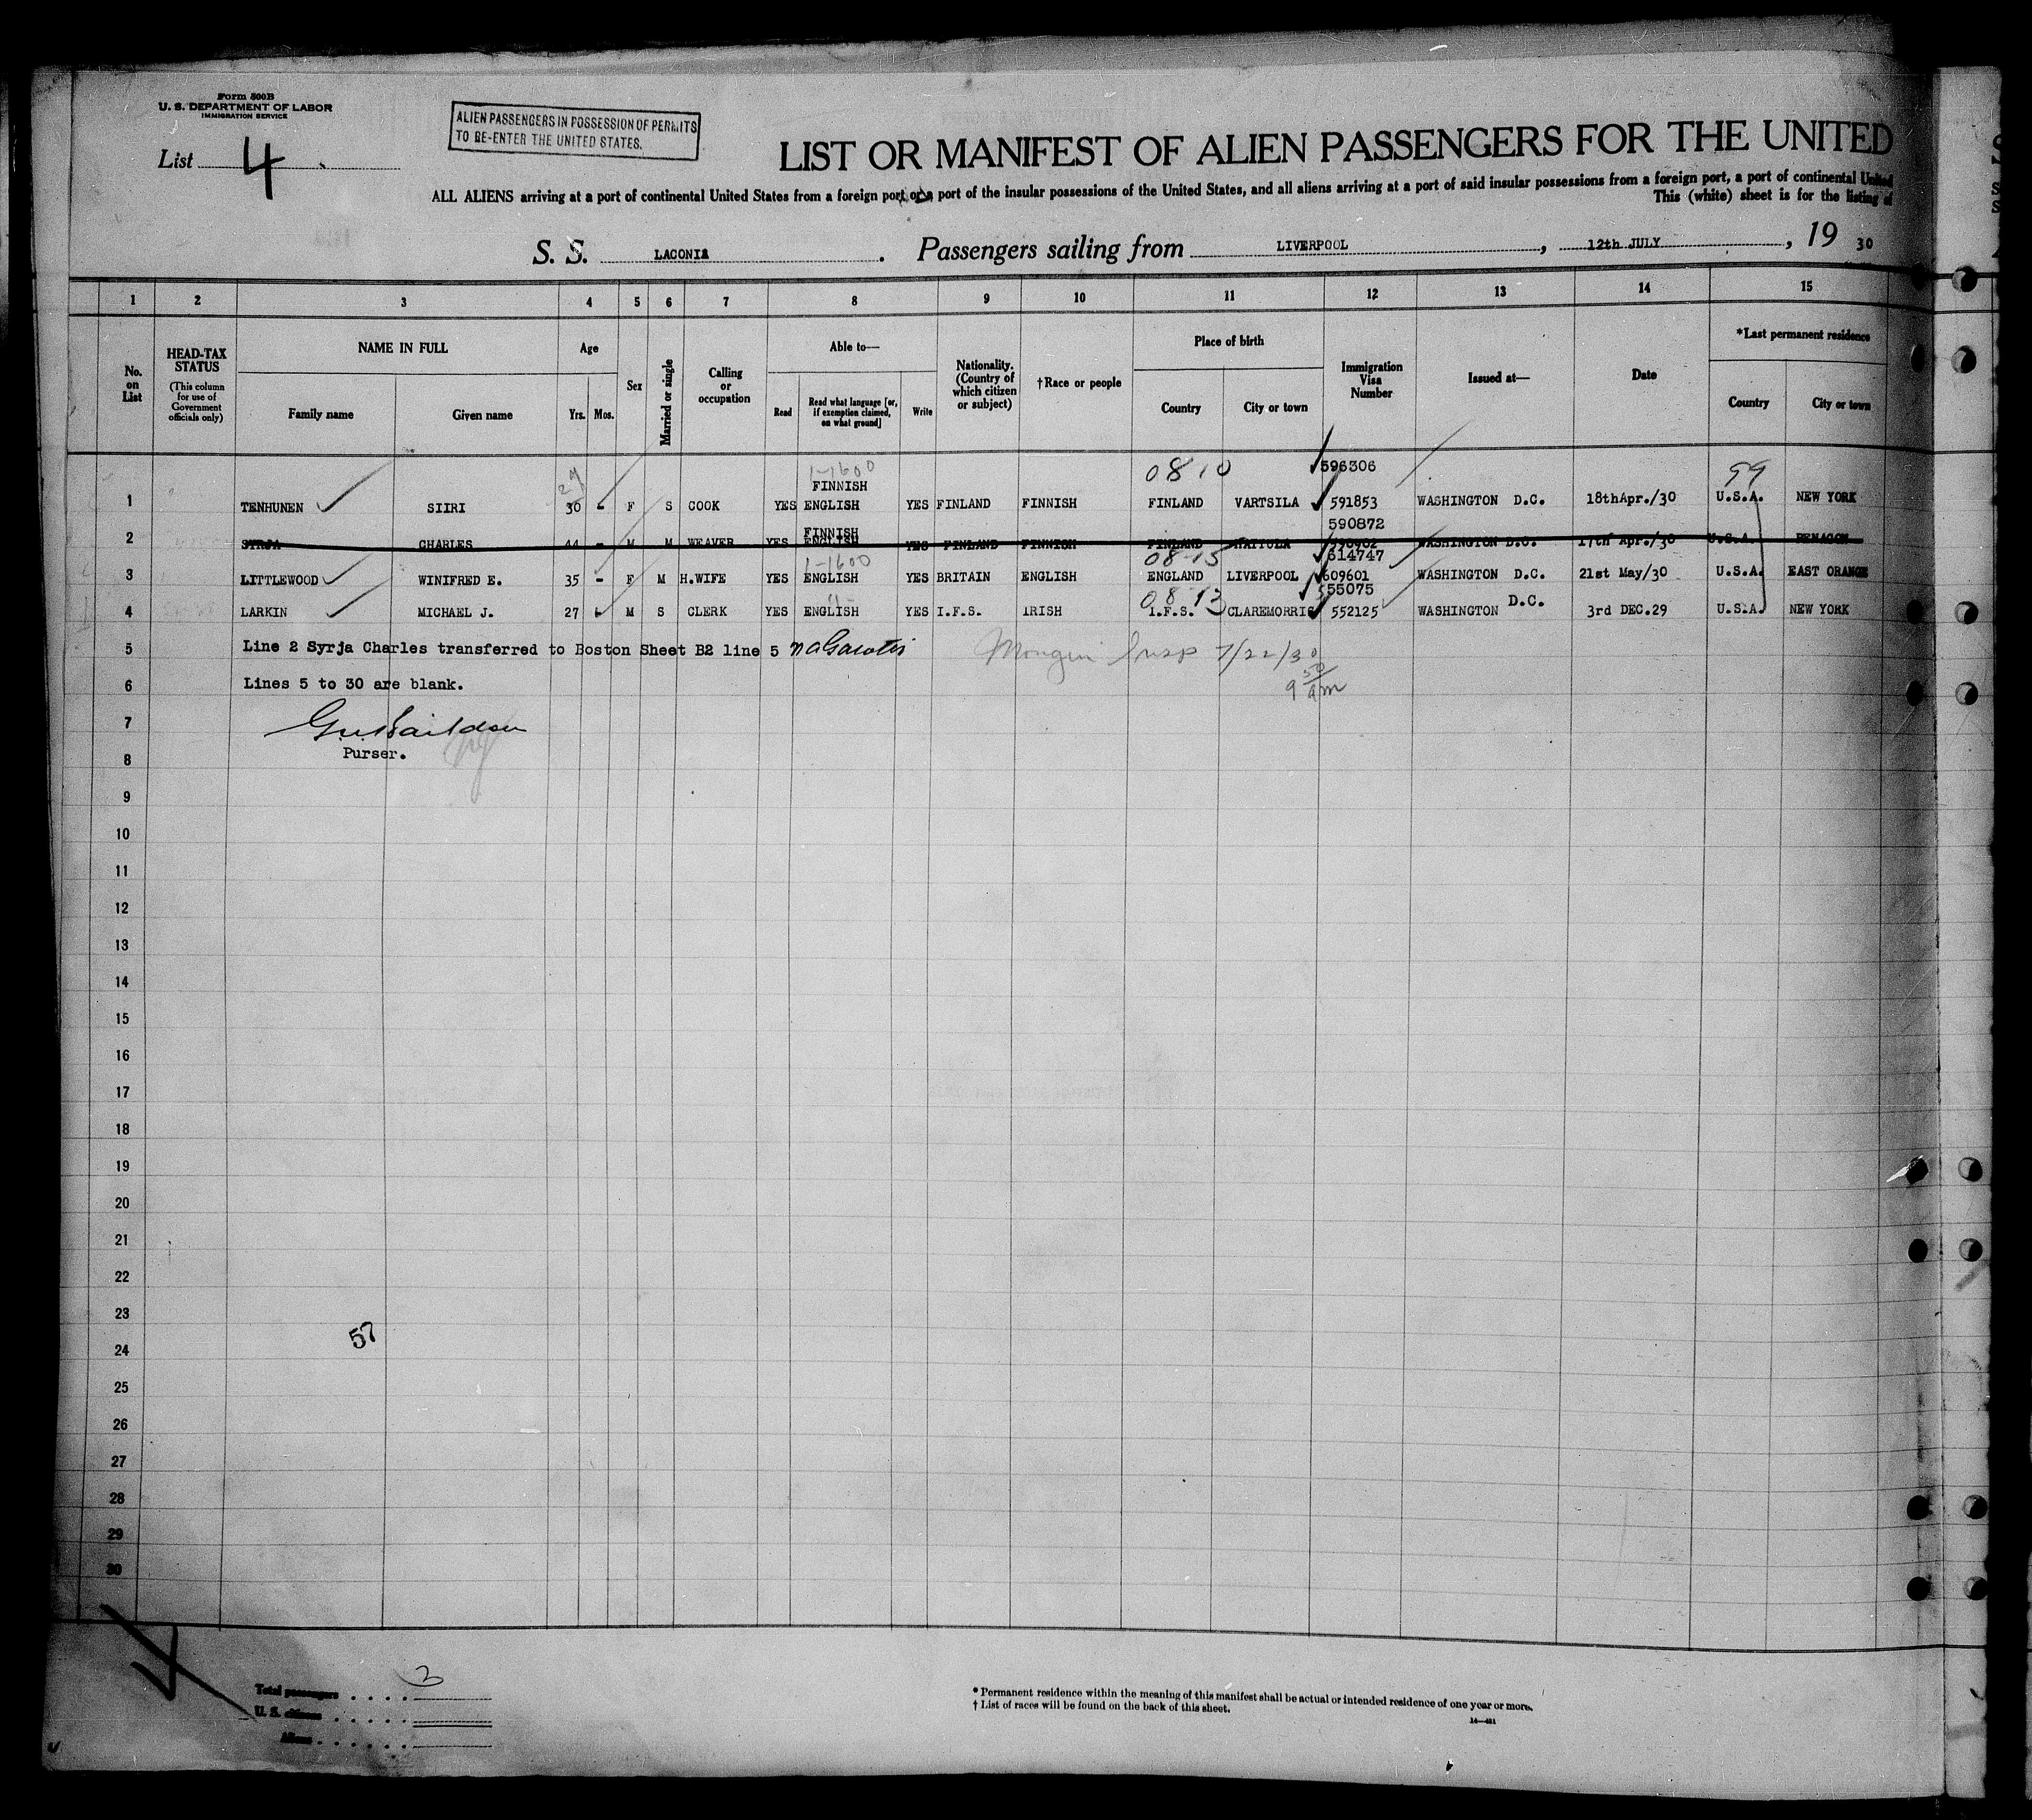 Form 500B
U. S. DEPARTMENT OF LABOR
IMMIGRATION SERVICE
List 4
ALIEN PASSENGERS IN POSSESSION OF PERMITS
TO RE-ENTER THE UNITED STATES.
LIST OR MANIFEST OF ALIEN PASSENGERS FOR THE UNITED
ALL ALIENS arriving at a port of continental United States from a foreign port or a port of the insular possessions of the United States, and all aliens arriving at a port of said insular possessions from a foreign port, a port of continental United
This (white) sheet is for the listing of
S. S. LACONIA. Passengers sailing from LIVERPOOL, 12th JULY, 19 30
1 2 3 4 5 6 7 8 9 10 11 12 13 14 15
No. on List
HEAD-TAX STATUS (This column for use of Government officials only)
NAME IN FULL
Family name
Given name
Age
Yrs.
Mos.
Sex
Married or single
Calling or occupation
Able to—
Read
Read what language [or, if exemption claimed, on what ground]
Write
Nationality. (Country of which citizen or subject)
†Race or people
Place of birth
Country
City or town
Immigration Visa Number
Issued at—
Date
*Last permanent residence
Country
City or town
29 1-1600 0810 596306 99
FINNISH
1 TENHUNEN SIIRI 30 - F S COOK YES ENGLISH YES FINLAND FINNISH FINLAND VARTSILA 591853 WASHINGTON D.C. 18thApr./30 U.S.A. NEW YORK
FINNISH 590872
2 SYRJA CHARLES 44 - M M WEAVER YES ENGLISH YES FINLAND FINNISH FINLAND WASHINGTON D.C. 17th Apr./30 U.S.A.
1-1600 08-15 614747
3 LITTLEWOOD WINIFRED E. 35 - F M H.WIFE YES ENGLISH YES BRITAIN ENGLISH ENGLAND LIVERPOOL 609601 WASHINGTON D.C. 21st May/30 U.S.A. EAST ORANGE
08 13 555075
4 LARKIN MICHAEL J. 27 - M S CLERK YES ENGLISH YES I.F.S. IRISH I.F.S. CLAREMORRIS 552125 WASHINGTON D.C. 3rd DEC.29 U.S.A. NEW YORK
5 Line 2 Syrja Charles transferred to Boston Sheet B2 line 5
Insp 7/22/30
9 50 am
6 Lines 5 to 30 are blank.
7
Purser.
8
9
10
11
12
13
14
15
16
17
18
19
20
21
22
23
57
24
25
26
27
28
29
30
Total passengers . . . . 3
U. S. citizens . . . . .
Aliens . . . . . .
* Permanent residence within the meaning of this manifest shall be actual or intended residence of one year or more.
† List of races will be found on the back of this sheet.